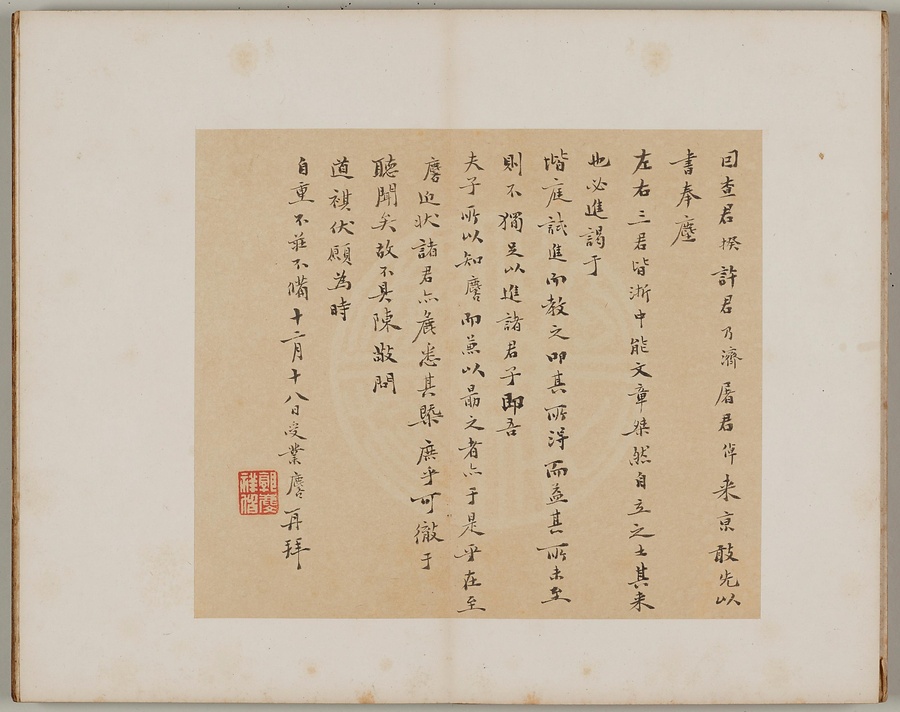 因查君揆許君乃濟屠君倬来京敢先以
書奉塵
左右三君皆浙中能文章嶷然自立之士其来
也必進謁于
堦庭試進而教之叩其所得而益其所未至
則不獨足以進諸君子即吾
夫子所以知麐而兼以勗之者亦于是乎在至
麐近状諸君亦蔍悉其槩庶乎可徹于
聽聞矣故不具陳敬問
道祺伏願為時
自重不莊不備十二月十八日受業麐再拜
郭麐祥伯